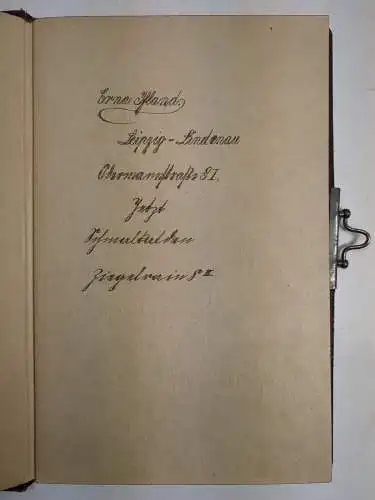 Erna Ifland.
Leipzig-Lindenau
Odermannstraße 8 I.
Jetzt
Schmalkalden
Ziegelrain 8 II